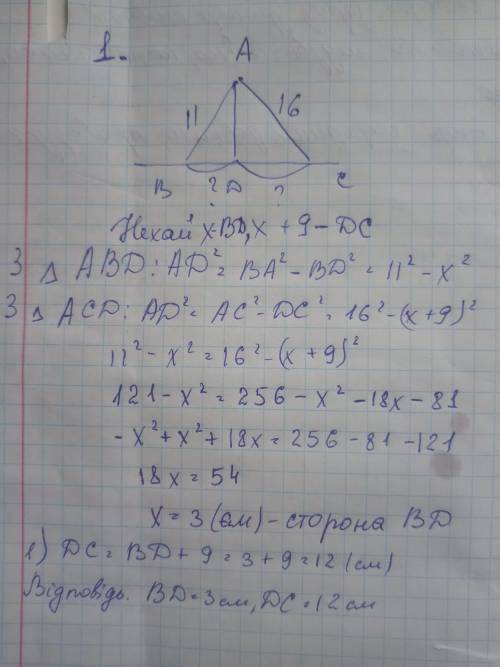 1.
A
11
16
B ? D ? C
Нехай х-BD, х + 9 - DC
З △ ABD: AD² = BA² - BD² = 11² - x²
З △ ACD: AD² = AC² - DC² = 16² - (x+9)²
11² - x² = 16² - (x + 9)²
121 - x² = 256 - x² - 18x - 81
- x² + x² + 18x = 256 - 81 - 121
18x = 54
x = 3 (см) - сторона BD
1) DC = BD + 9 = 3 + 9 = 12 (см)
Відповідь. BD = 3 см, DC = 12 см